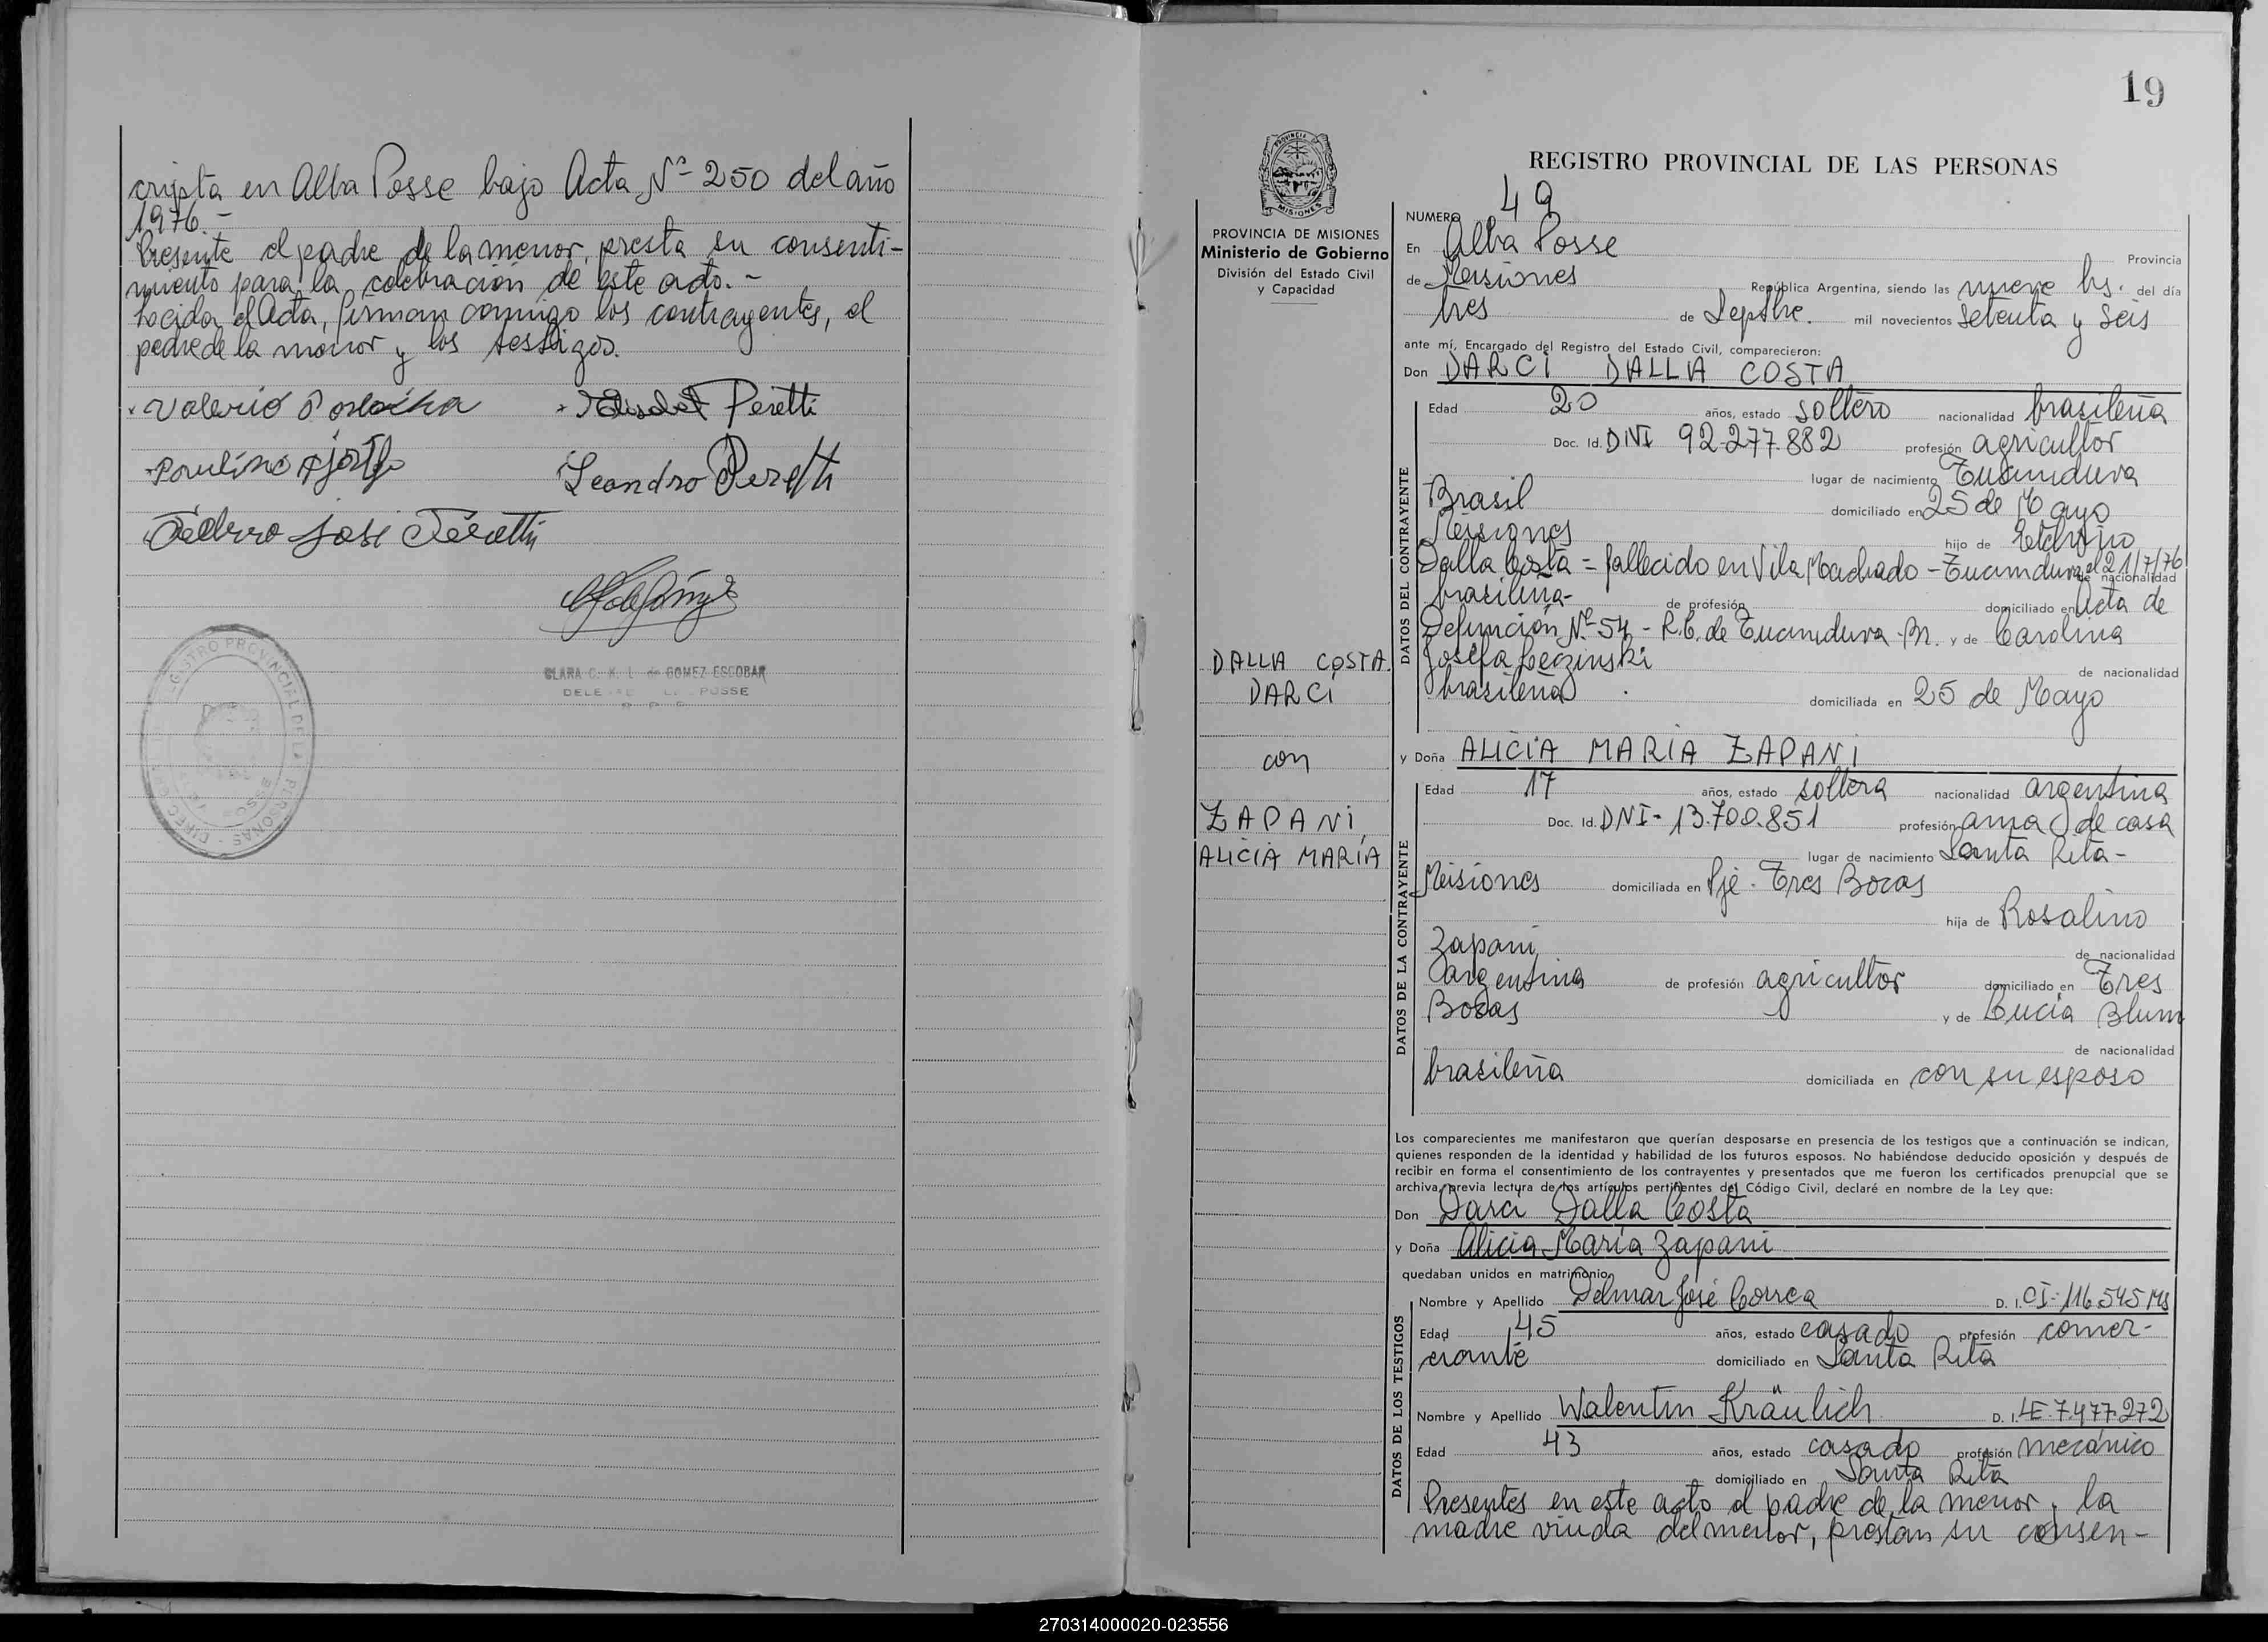 cripta en Alba Posse bajo Acta Nº 250 del año
1976.-
Presente el padre de la menor, presta su consenti-
miento para la celebración de este acto.-
Leída el Acta, firman conmigo los contrayentes, el
padre de la menor y los testigos.
Valerio
Peretti
Paulino
Leandro Peretti
José Peretti
CLARA C. K. L. de GOMEZ ESCOBAR
POSSE
19
REGISTRO PROVINCIAL DE LAS PERSONAS
PROVINCIA DE MISIONES
Ministerio de Gobierno
División del Estado Civil
y Capacidad
NUMERO 49
En Alba Posse Provincia
de Misiones República Argentina, siendo las nueve hs. del día
tres de Sepbre. mil novecientos setenta y seis
ante mí, Encargado del Registro del Estado Civil, comparecieron:
Don DARCI DALLA COSTA
DATOS DEL CONTRAYENTE
Edad 20 años, estado soltero nacionalidad brasileña
Doc. Id. DNI 92.277.882 profesión agricultor
lugar de nacimiento Tucunduva
Brasil domiciliado en 25 de Mayo
Misiones hijo de
Dalla Costa = fallecido en Vila Machado - Tucunduva el 21/7/76 de nacionalidad
brasileña- de profesión domiciliado en Acta de
Defunción Nº 54 - R.C. de Tucunduva y de Carolina
Josefa de nacionalidad
brasileña domiciliada en 25 de Mayo
DALLA COSTA
DARCI
con
ZAPANI,
ALICIA MARÍA
y Doña ALICIA MARIA ZAPANI
DATOS DE LA CONTRAYENTE
Edad 17 años, estado soltera nacionalidad argentina
Doc. Id. DNI- 13.700.851 profesión ama de casa
lugar de nacimiento Santa Rita-
Misiones domiciliada en Pje. Tres Bocas
hija de Rosalino
Zapani de nacionalidad
argentina de profesión agricultor domiciliado en Tres
Bocas y de Lucía Blum
de nacionalidad
brasileña domiciliada en con su esposo
Los comparecientes me manifestaron que querían desposarse en presencia de los testigos que a continuación se indican,
quienes responden de la identidad y habilidad de los futuros esposos. No habiéndose deducido oposición y después de
recibir en forma el consentimiento de los contrayentes y presentados que me fueron los certificados prenupcial que se
archiva, previa lectura de los artículos pertinentes del Código Civil, declaré en nombre de la Ley que:
Don Darci Dalla Costa
y Doña Alicia María Zapani
quedaban unidos en matrimonio
DATOS DE LOS TESTIGOS
Nombre y Apellido Delmar José Correa D. I. CI- 116.545 Ms
Edad 45 años, estado casado profesión comer-
ciante domiciliado en Santa Rita
Nombre y Apellido Walentin Kräulich D. I. LE. 7.477.272
Edad 43 años, estado casado profesión mecánico
domiciliado en Santa Rita
Presentes en este acto el padre de la menor y la
madre viuda del menor, prestan su consen-
270314000020-023556